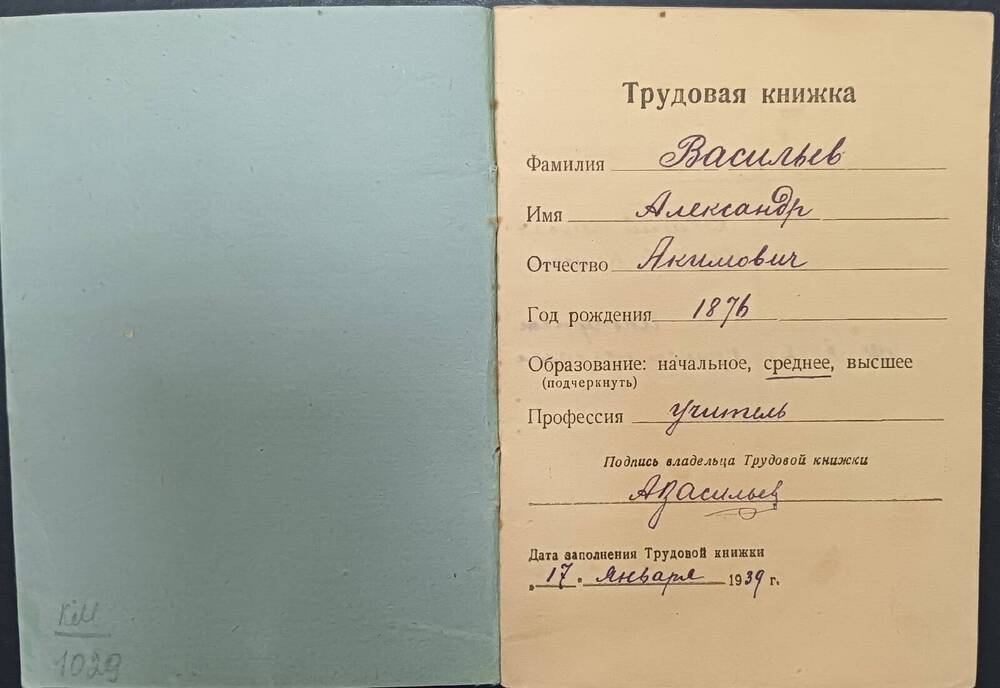 КМ
1029
Трудовая книжка
Фамилия Васильев
Имя Александр
Отчество Акимович
Год рождения 1876
Образование: начальное, среднее, высшее
(подчеркнуть)
Профессия учитель
Подпись владельца Трудовой книжки
АВасильев
Дата заполнения Трудовой книжки
„17" января 1939 г.